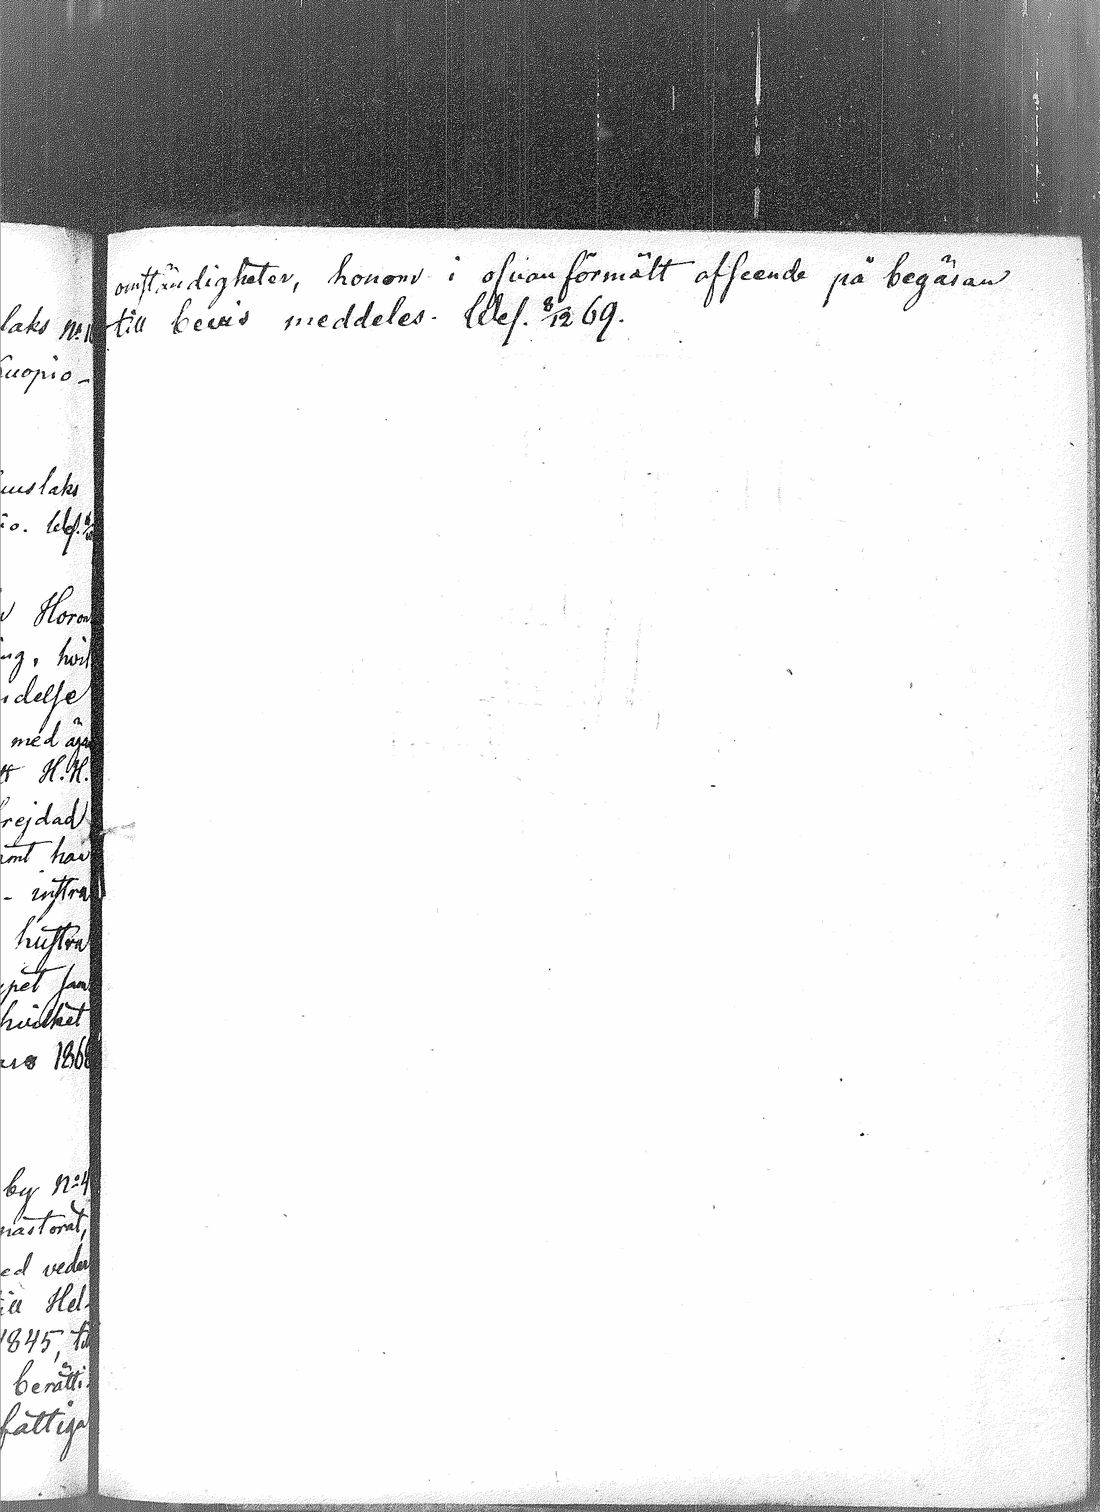 laks No 1
Kuopio-
huuslaks
io. Idef. 8/12
Horon
ing, hvil
ndelse
med äga
H.H.
frejdad
samt har
- inftra
huftru
hvilket
1868
by No 4
pastorat,
ed veder
till Hel-
1845, till
berätti-
fattiga
omständigheter, honom i ofvanförmält afseende på begäran
till bevis meddeles. Idef. 8/12 69.